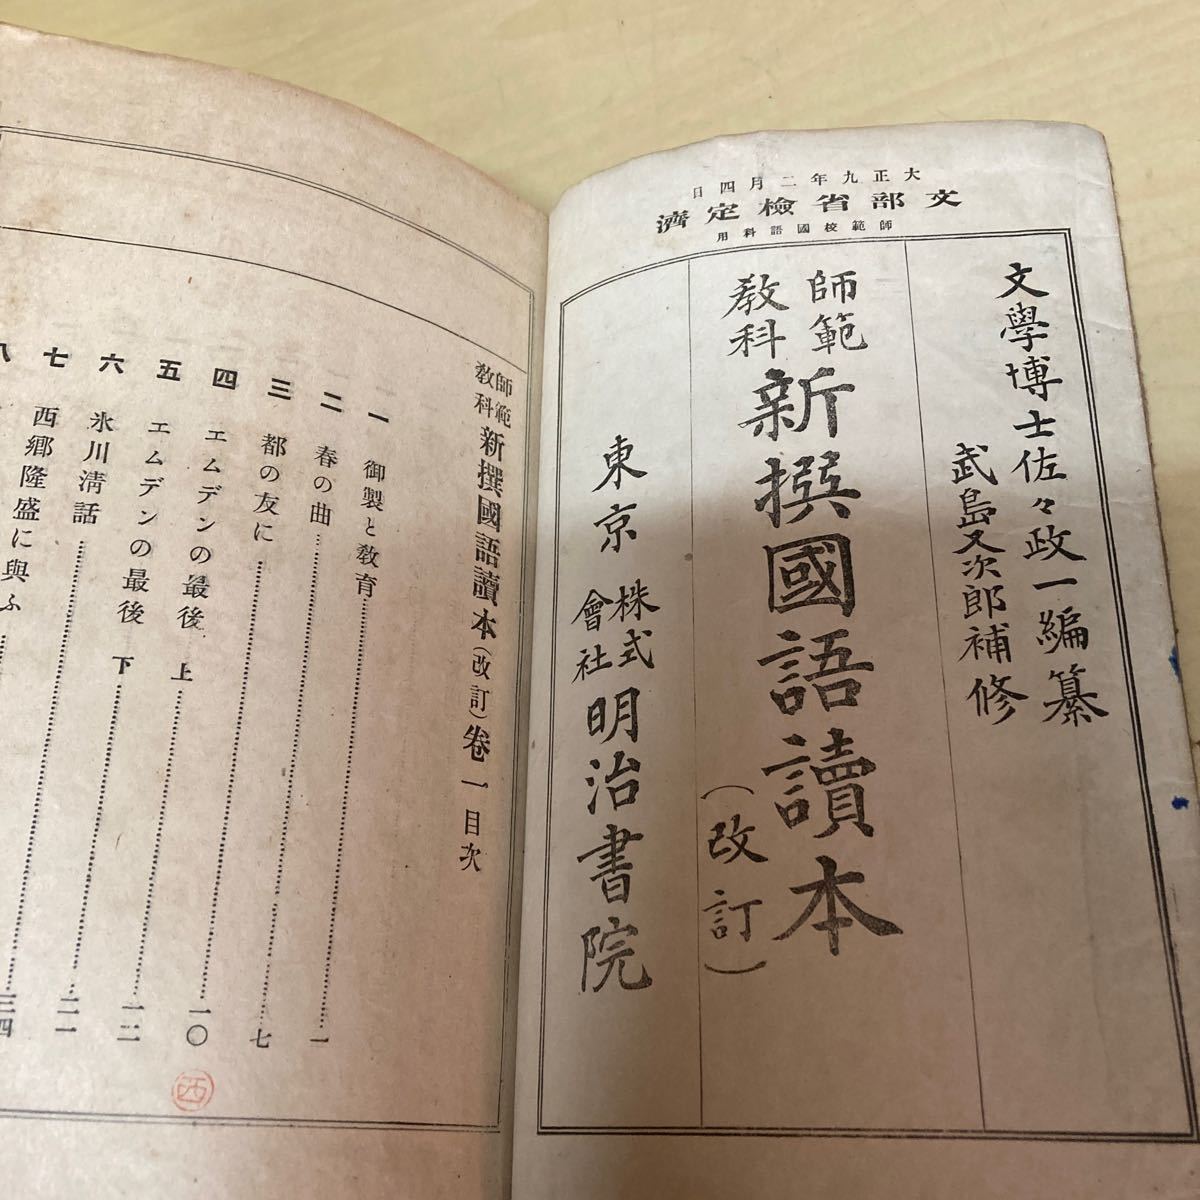 大正九年二月四日
文部省檢定濟
師範校國語科用
文學博士佐々政一編纂
武島又次郎補修
師範教科 新撰國語讀本
(改訂)
東京 株式會社 明治書院
師範教科 新撰國語讀本(改訂)卷一目次
一 御製と教育……一
二 春の曲……七
三 都の友に……一〇
四 エムデンの最後 上……一二
五 エムデンの最後 下……二一
六 氷川清話……三四
七 西鄉隆盛に與ふ
八
西